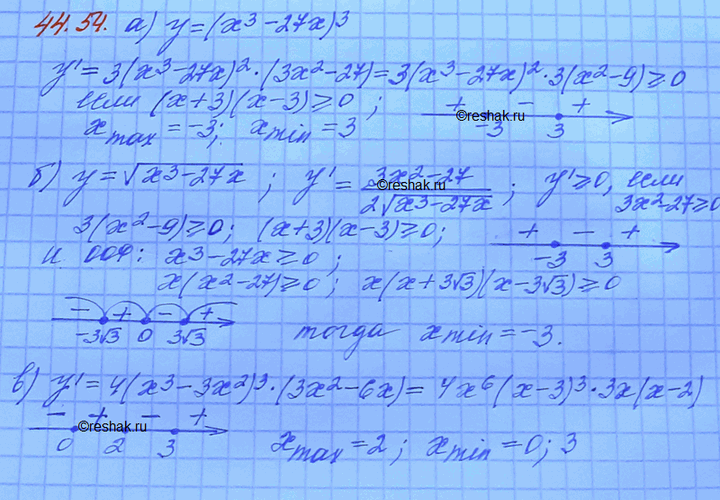 44.54. а) y = (x³ – 27x)³
y' = 3(x³ – 27x)² · (3x² – 27) = 3(x³ – 27x)² · 3(x² – 9) ≥ 0
если (x + 3)(x – 3) ≥ 0 ; + – +
©reshak.ru
–3 3
x_max = –3; x_min = 3
б) y = √(x³ – 27x) ; y' = (3x² – 27)/(2√(x³ – 27x)) ; y' ≥ 0, если
©reshak.ru
3x² – 27 ≥ 0
3(x² – 9) ≥ 0; (x + 3)(x – 3) ≥ 0; + – +
–3 3
и ООФ: x³ – 27x ≥ 0 ;
x(x² – 27) ≥ 0 ; x(x + 3√3)(x – 3√3) ≥ 0
– + – +
–3√3 0 3√3 тогда x_min = –3.
в) y' = 4(x³ – 3x²)³ · (3x² – 6x) = 4x⁶(x – 3)³ · 3x(x – 2)
– + – +
©reshak.ru
0 2 3 x_max = 2 ; x_min = 0; 3